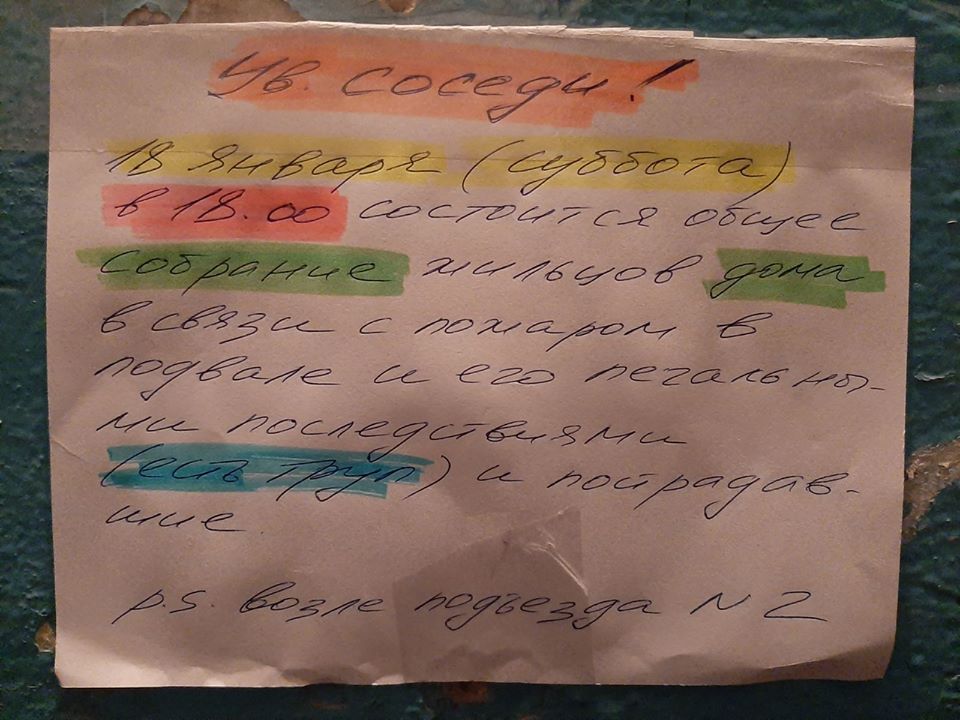 Ув. соседи!
18 января (суббота)
в 18.00 состоится общее
собрание жильцов дома
в связи с пожаром в
подвале и его печальны-
ми последствиями
(есть труп) и пострадав-
шие.
p.s. возле подъезда N 2